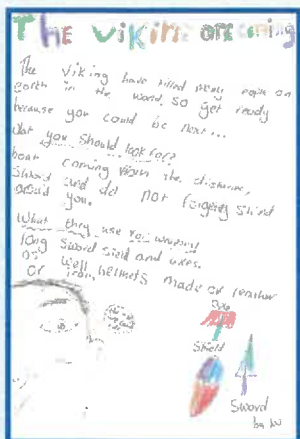 The vikins are coming
The viking have killed many  on
earth in the world, so get ready
because you could be next...
What you should look for?
boat coming from the distance,
Shword and do not forgeting shield
around you.
What they use for 
long sword sield and axes.
as well helmets made of leather
or iron.
Axe
Shield
Sword
by